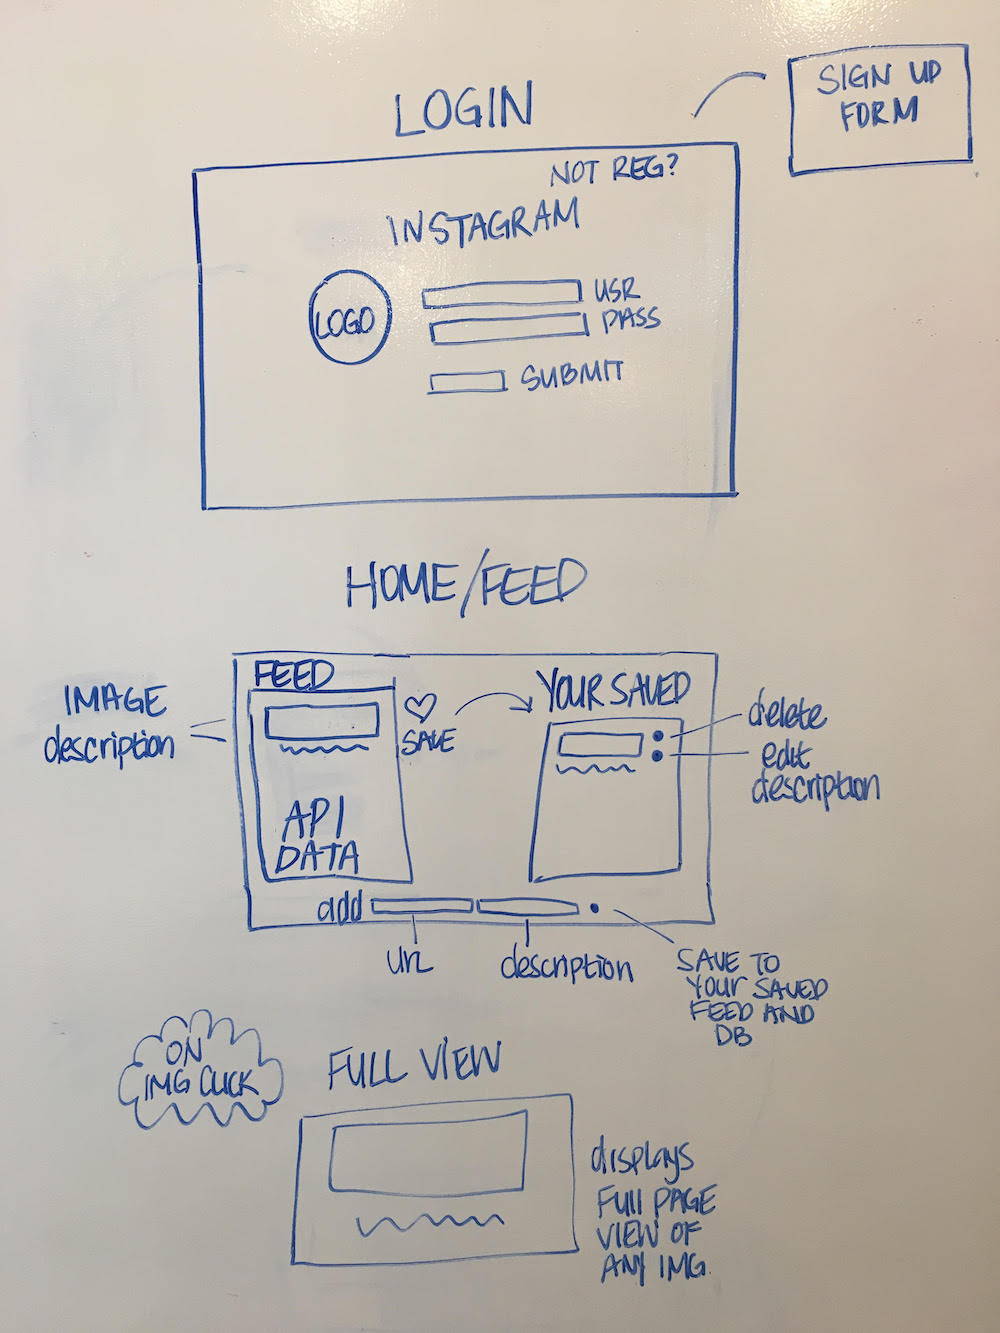 LOGIN
SIGN UP
FORM
NOT REG?
INSTAGRAM
LOGO
USR
PASS
SUBMIT
HOME/FEED
FEED
YOUR SAVED
IMAGE
description
SAVE
delete
edit
description
API
DATA
add
url
description
SAVE TO
YOUR SAVED
FEED AND
DB
ON
IMG CLICK
FULL VIEW
displays
FUll PAGE
VIEW OF
ANY IMG.